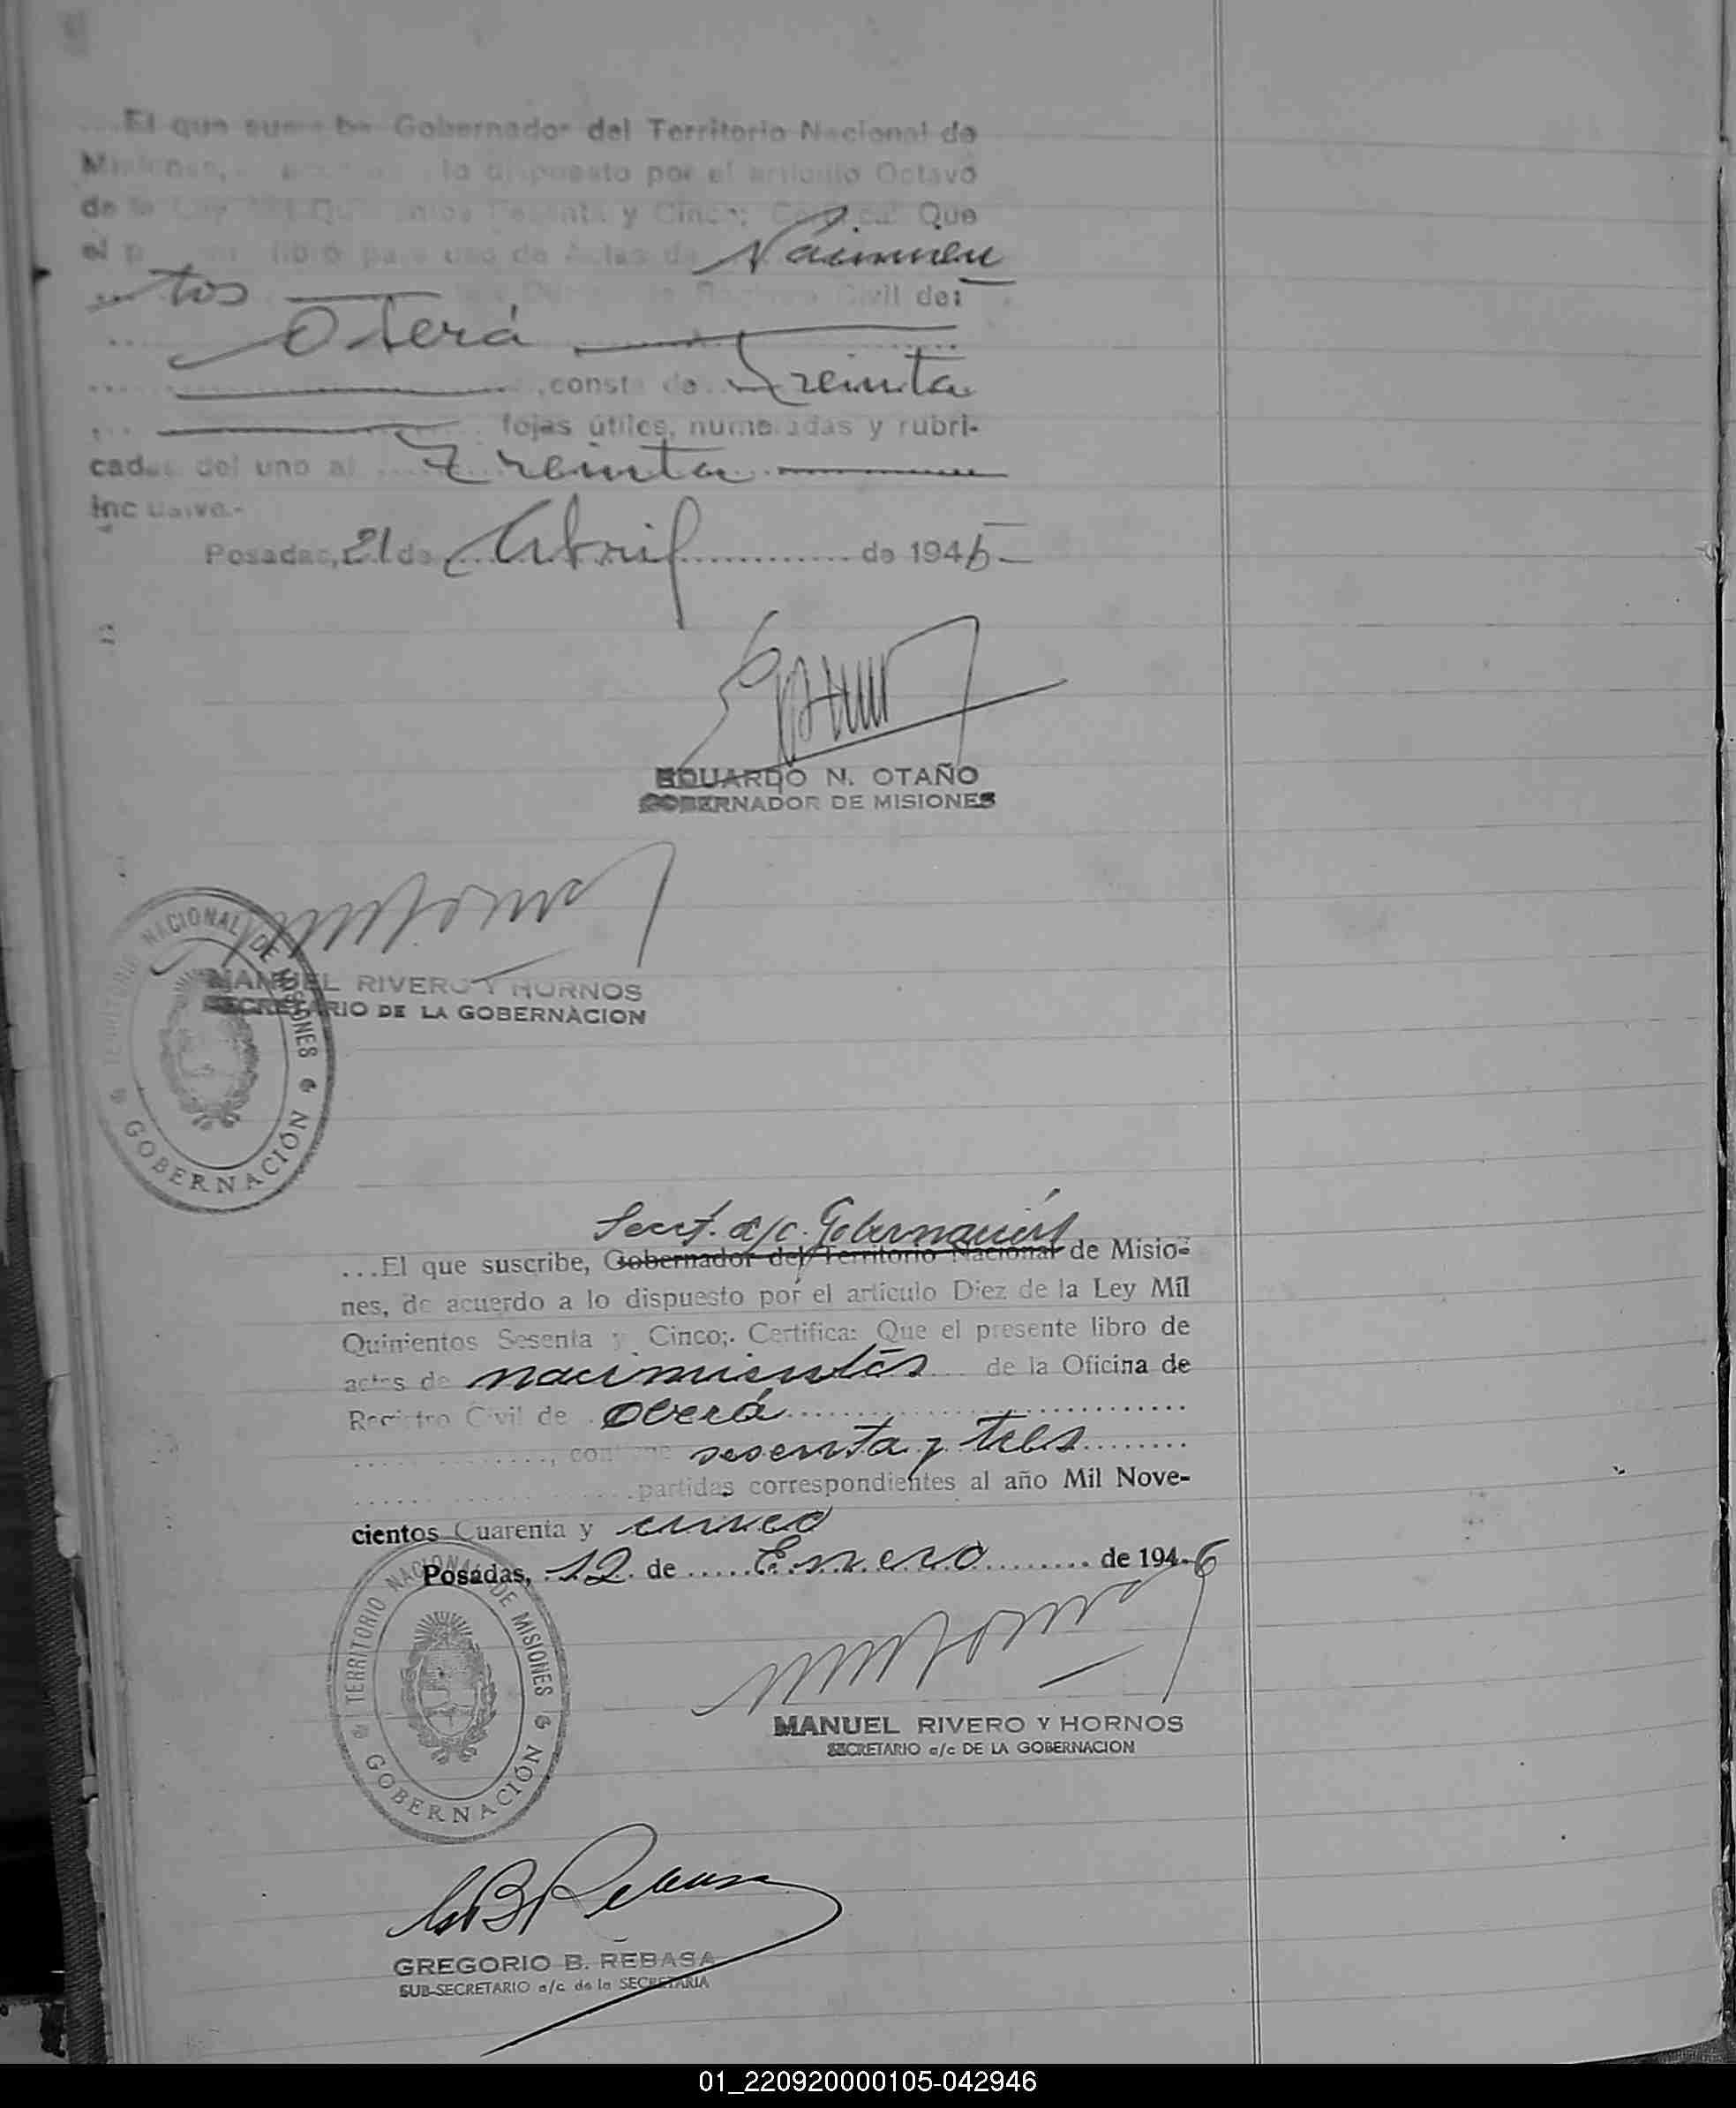 ...El que suscribe Gobernador del Territorio Nacional de
Misiones, lo dispuesto por el artículo Octavo
de la Ley Mil Quinientos Sesenta y Cinco; Certifica: Que
el presente libro para uso de Actas de Nacimien
tos Registro Civil de:
Oberá
, consta de Treinta
fojas útiles, numeradas y rubri-
cadas del uno al Treinta
inclusive.-
Posadas, 21 de Abril de 1945
EDUARDO N. OTAÑO
GOBERNADOR DE MISIONES
MANUEL RIVERO Y HORNOS
SECRETARIO DE LA GOBERNACION
TERRITORIO NACIONAL DE MISIONES
GOBERNACIÓN
Secret. a/c. Gobernación
...El que suscribe, Gobernador del Territorio Nacional de Misio-
nes, de acuerdo a lo dispuesto por el artículo Diez de la Ley Mil
Quinientos Sesenta y Cinco;. Certifica: Que el presente libro de
actas de nacimientos de la Oficina de
Registro Civil de Oberá
, contiene sesenta y tres
partidas correspondientes al año Mil Nove-
cientos Cuarenta y cinco
Posadas, 12 de Enero de 1946
TERRITORIO NACIONAL DE MISIONES
GOBERNACIÓN
MANUEL RIVERO Y HORNOS
SECRETARIO a/c DE LA GOBERNACION
GREGORIO B. REBASA
SUB-SECRETARIO a/c de la SECRETARIA
01_220920000105-042946